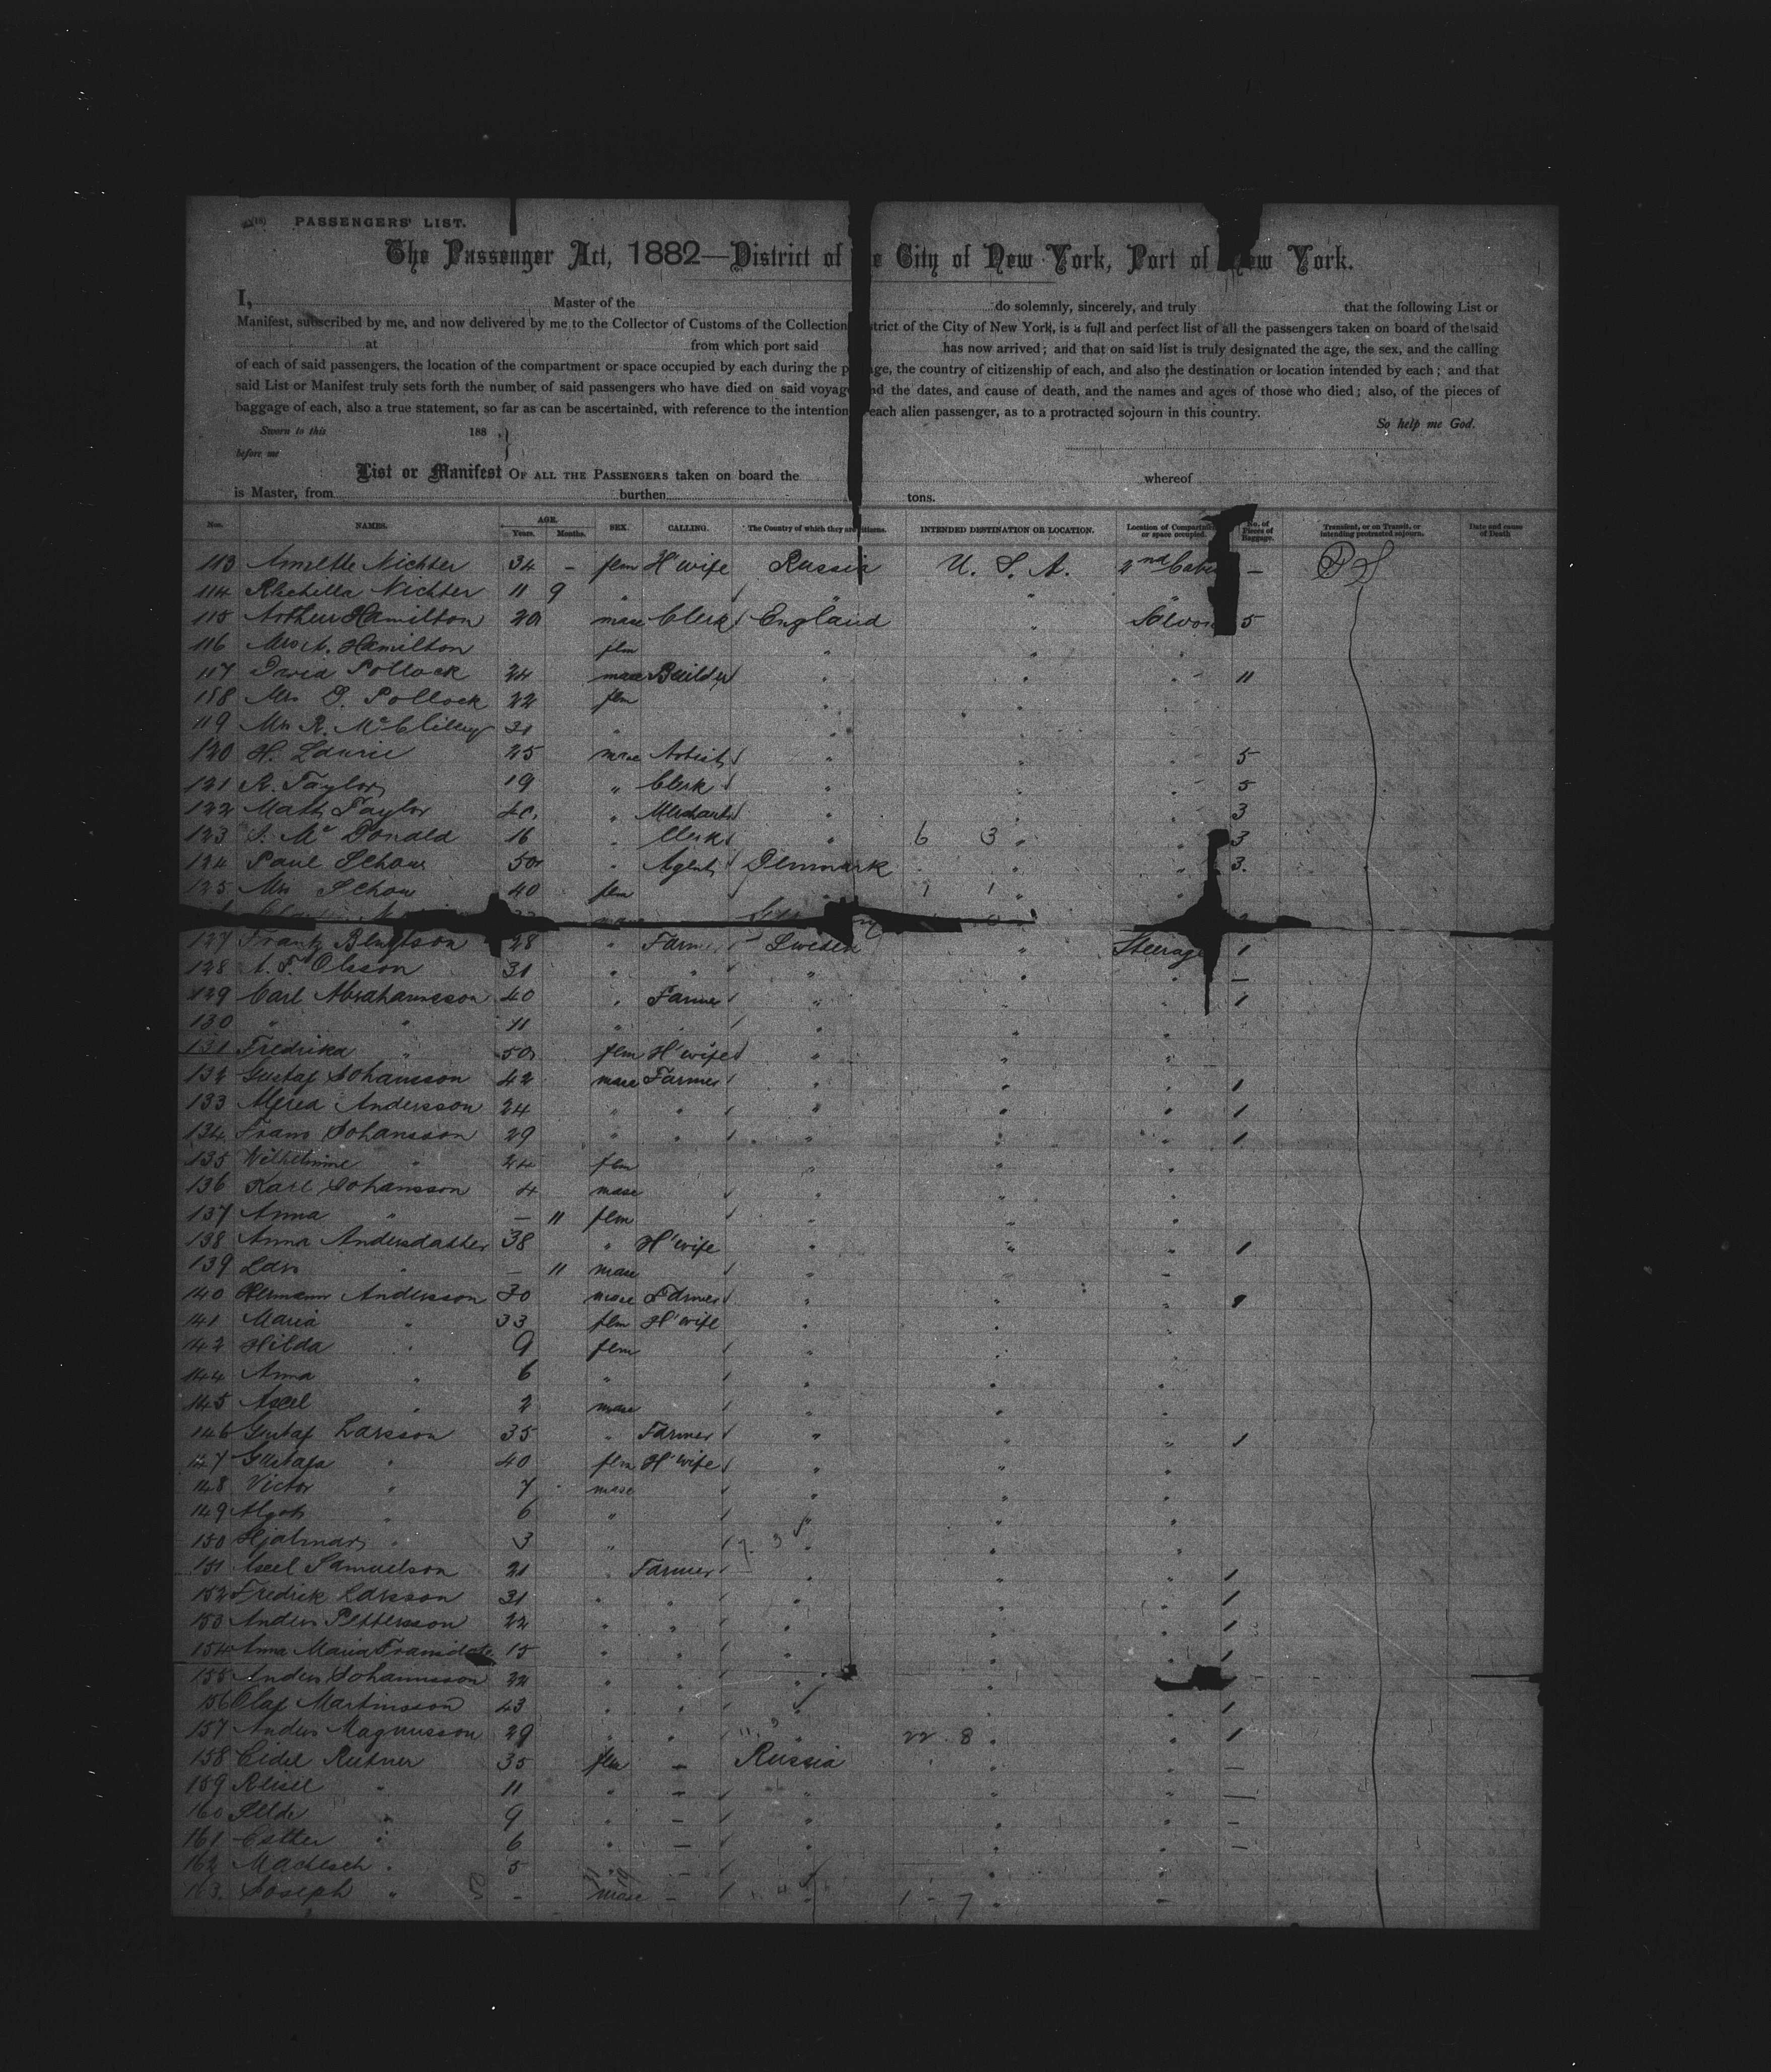 PASSENGERS' LIST.
The Passenger Act, 1882—District of e City of New York, Port of ew York.
I, Master of the do solemnly, sincerely, and truly that the following List or
Manifest, subscribed by me, and now delivered by me to the Collector of Customs of the Collection trict of the City of New York, is a full and perfect list of all the passengers taken on board of the said
at from which port said has now arrived; and that on said list is truly designated the age, the sex, and the calling
of each of said passengers, the location of the compartment or space occupied by each during the p age, the country of citizenship of each, and also the destination or location intended by each; and that
said List or Manifest truly sets forth the number of said passengers who have died on said voyag nd the dates, and cause of death, and the names and ages of those who died; also, of the pieces of
baggage of each, also a true statement, so far as can be ascertained, with reference to the intention each alien passenger, as to a protracted sojourn in this country.
So help me God.
Sworn to this 188
before me
List or Manifest OF ALL THE PASSENGERS taken on board the whereof
is Master, from burthen tons.
Nos. NAMES. AGE. Years. Months. SEX. CALLING. The Country of which they are citizens. INTENDED DESTINATION OR LOCATION. Location of Compartm or space occupied. No. of Pieces of Baggage. Transient, or on Transit, or intending protracted sojourn. Date and cause of Death
113 Annette Nichter 34 - fem H'wife Russia U. S. A. 2nd Cabi — PS
114 Rachella Nichter 11 9 "
115 Arthur Hamilton 20 mase Clerk England " 5
116 Mrs A. Hamilton fem " "
117 David Pollock 24 mase Builder " " " 11
118 Mrs D. Pollock 22 fem " "
119 Mrs R. 31 " " "
120 H. Laurie 25 mase Artist " " 5
121 R. Taylor 19 " Clerk " " " 5
122 Matt Taylor 40 " Merchant " " 3
123 McDonald 16 " Clerk " 6 3 " " 3
124 Paul Schou 50 " Agent Denmark " 3.
125 Mrs Schou 40 fem 1 1 "
127 Frantz Bengtson 28 " Farm Sweden " Steerage 1
128 A. F. Olsson 31 " " " " " —
129 Carl Abrahamsson 40 " Farmer " " " 1
130 " " 11 " " " " "
131 Fredrika " 50 fem H'wife " " "
132 Gustaf Johansson 42 mase Farmer " " " 1
133 Alfred Andersson 24 " " " " " 1
134 Frans Johansson 29 " " " " " 1
135 Wilhelmine " 24 fem " " "
136 Karl Johansson 4 mase " " "
137 Anna " — 11 fem " " "
138 Anna Andersdatter 38 " H'wife " " " 1
139 Lars " — 11 mase " " "
140 Hermann Andersson 30 mase Farmer " " " 1
141 Maria " 33 fem H'wife " " "
142 Hilda " 9 fem " " "
144 Anna " 6 " " " "
145 Axel " 2 mase " " "
146 Gustaf Larsson 35 " Farmer " " " 1
147 Gustafa " 40 fem H'wife " " "
148 Victor " 7 mase " " "
149 Algot " 6 " " " "
150 Hjalmar " 3 " 7 3 " " "
151 Axel Samuelson 21 " Farmer " " 1
152 Fredrik Larsson 31 " " " " " 1
153 Anders Pettersson 22 " " " " " 1
154 Anna Maria 15 " " " " " 1
155 Anders Johannsson 22 " " " "
156 Olaf Martinsson 43 " " " " " 1
157 Anders Magnusson 29 " " " 22 8 " " 1
158 Eidel Reitner 35 fem — Russia " " —
159 " 11 " — " " " —
160 " 9 " — " " " —
161 Esther " 6 " — " " " —
162 " 5 " — " "
163. Joseph " - mase — " 1 - 7 " —